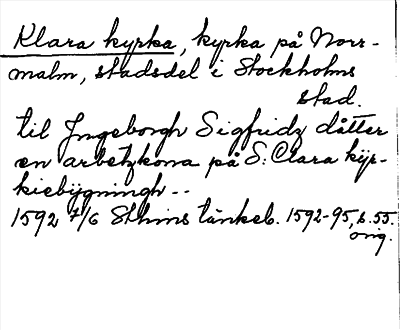 Klara kyrka, kyrka på Norr-
malm, stadsdel i Stockholms
stad.
til Jngeborgh Sigfridz dåtter
en arbetzkona på S: Clara kÿr-
kiebÿgningh --
1592 7/6 Sthms tänkeb. 1592-95, s. 55.
orig.